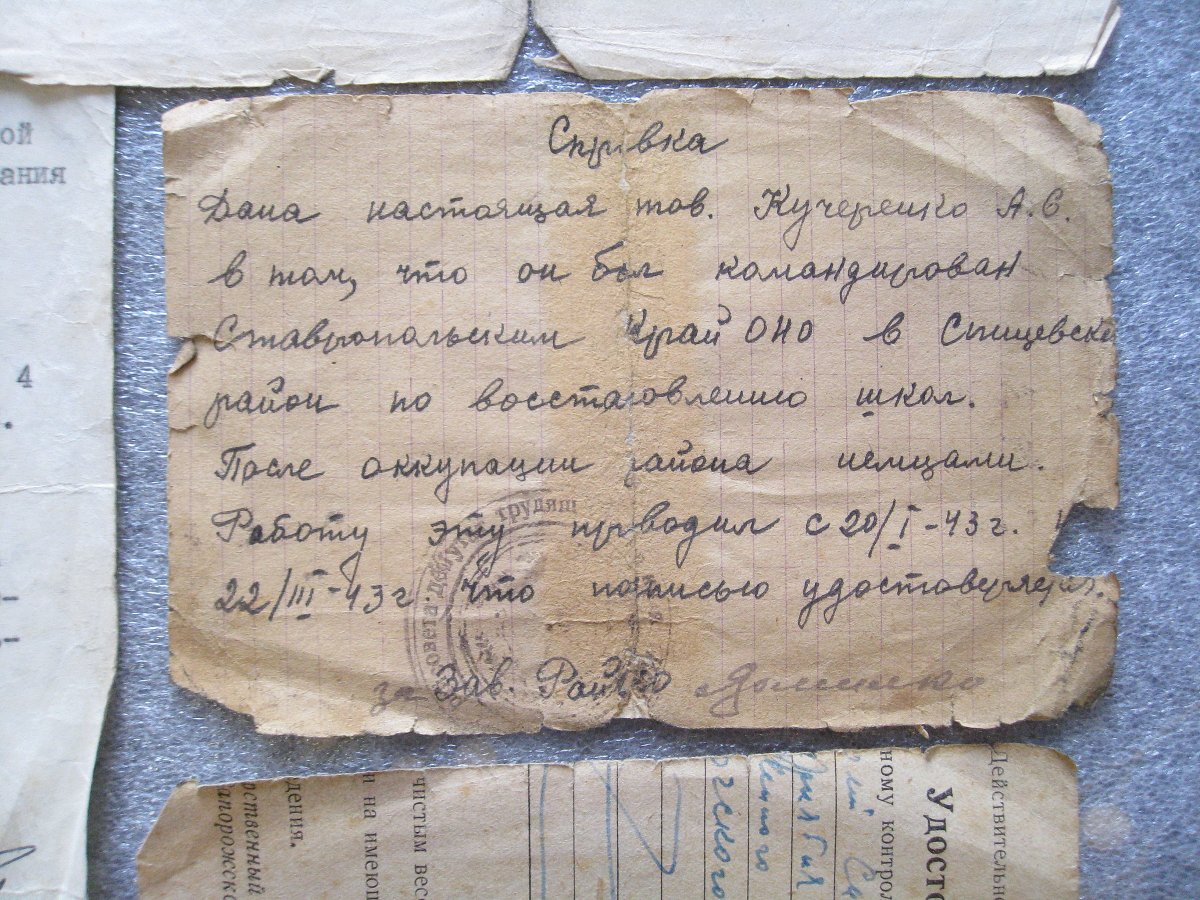 ой
ания
4
Справка
Дана настоящая тов. Кучеренко А.С.
в том, что он был командирован
Ставропольским Край ОНО в Спицевск
район по восстановлению школ.
После оккупации района немцами.
Работу эту проводил с 20/I-43 г.
22/III-43 г что поописью удостоверяется.
за Зав. РайОНО
овета депутат трудящ
Действительно
Удосто
ному контрол
чистым весо
на имеющ
дения.
рственный
апорожско